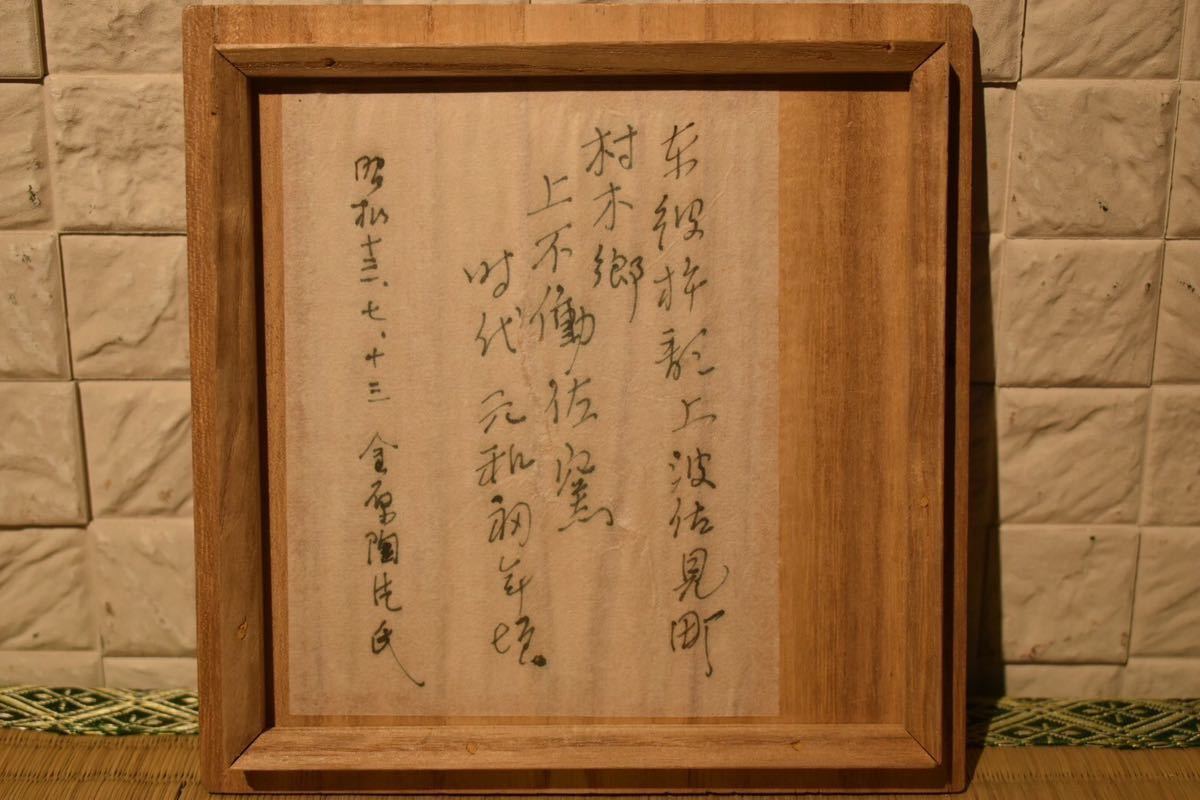 東彼杵郡上波佐見町
村木郷
上不働佐窯
時代 元和初年頃
昭和十三、七、十三 金原陶片氏